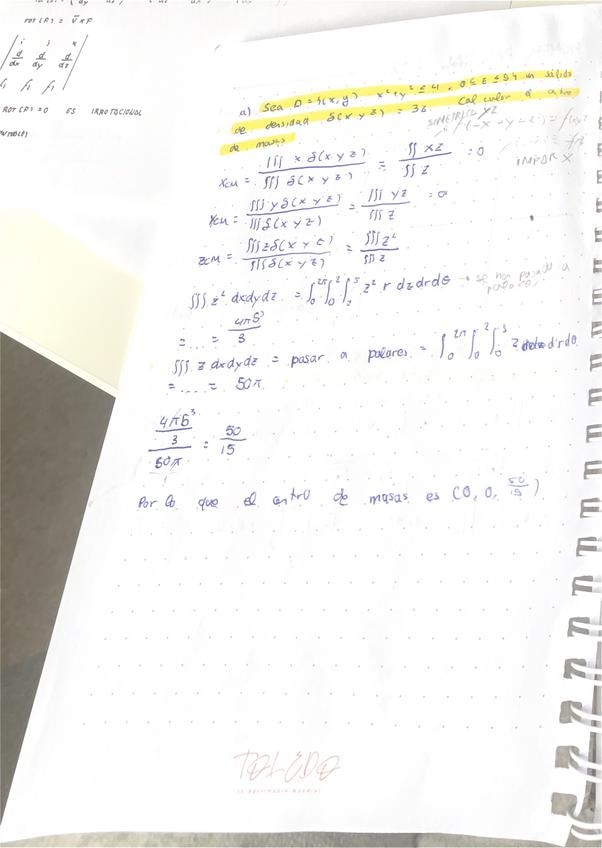 rot(F) = ∇ x F
i j k
d/dx d/dy d/dz
f₁ f₂ f₃
ROT(F) = 0 ES IRROTACIONAL
a) Sea D = {(x,y) x²+y² ≤ 4, 0 ≤ z ≤ 5} un sólido
de densidad δ(x y z) = 3z. Calcular el centro
de masas
SIMETRICO YZ
IMPAR X
xcm = ∫∫∫ x δ(x y z) / ∫∫∫ δ(x y z) = ∫∫ xz / ∫∫ z = 0
ycm = ∫∫∫ y δ(x y z) / ∫∫∫ δ(x y z) = ∫∫∫ yz / ∫∫∫ z = 0
zcm = ∫∫∫ z δ(x y z) / ∫∫∫ δ(x y z) = ∫∫∫ z² / ∫∫∫ z
∫∫∫ z² dxdydz = ∫₀^2π ∫₀^2 ∫^5 z² r dz dr dθ → se ha pasado a
= ... = 4π5³/3
∫∫∫ z dxdydz = pasar a polares = ∫₀^2π ∫₀^2 ∫₀^5 z dr dθ
= .... = 50π
(4π5³/3) / 50π = 50/15
Por lo que el centro de masas es (0, 0, 50/15)
TOLEDO